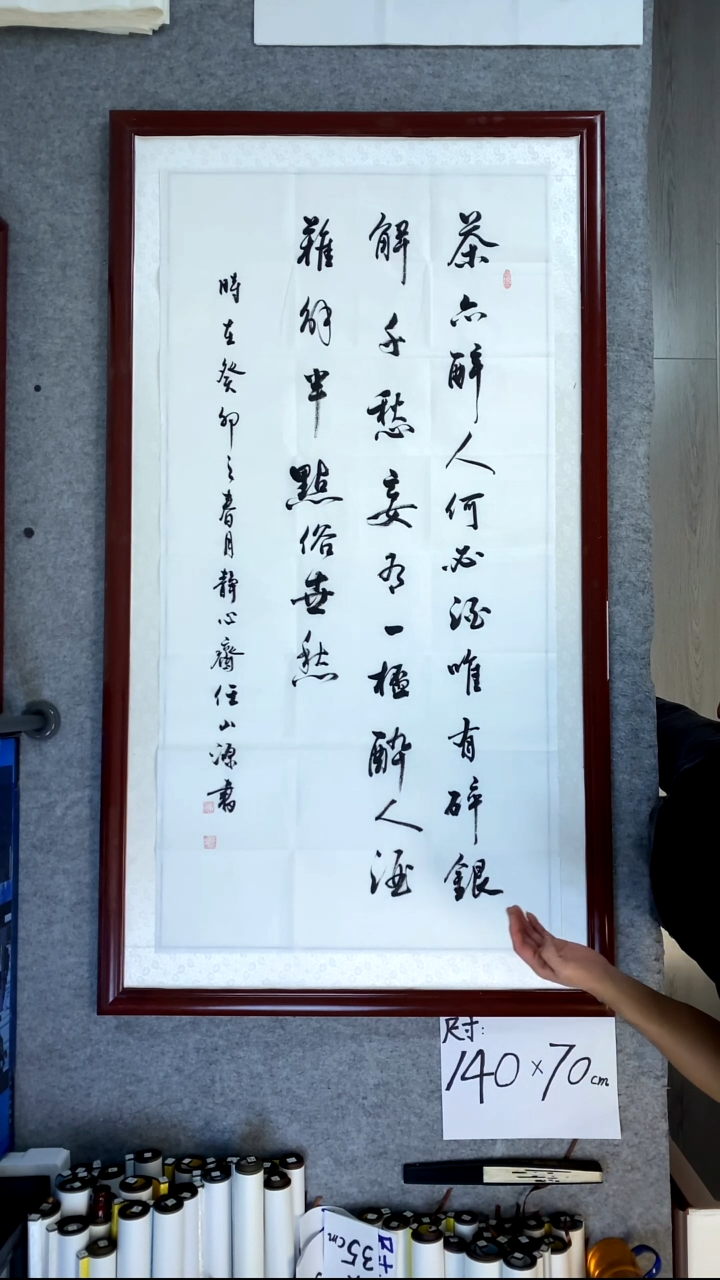 茶亦醉人何必酒唯有碎銀
解千愁妄有一醉人酒
難解半點俗世愁
時在癸卯之春月静心齋任山源書
尺寸:
140×70cm
35cm